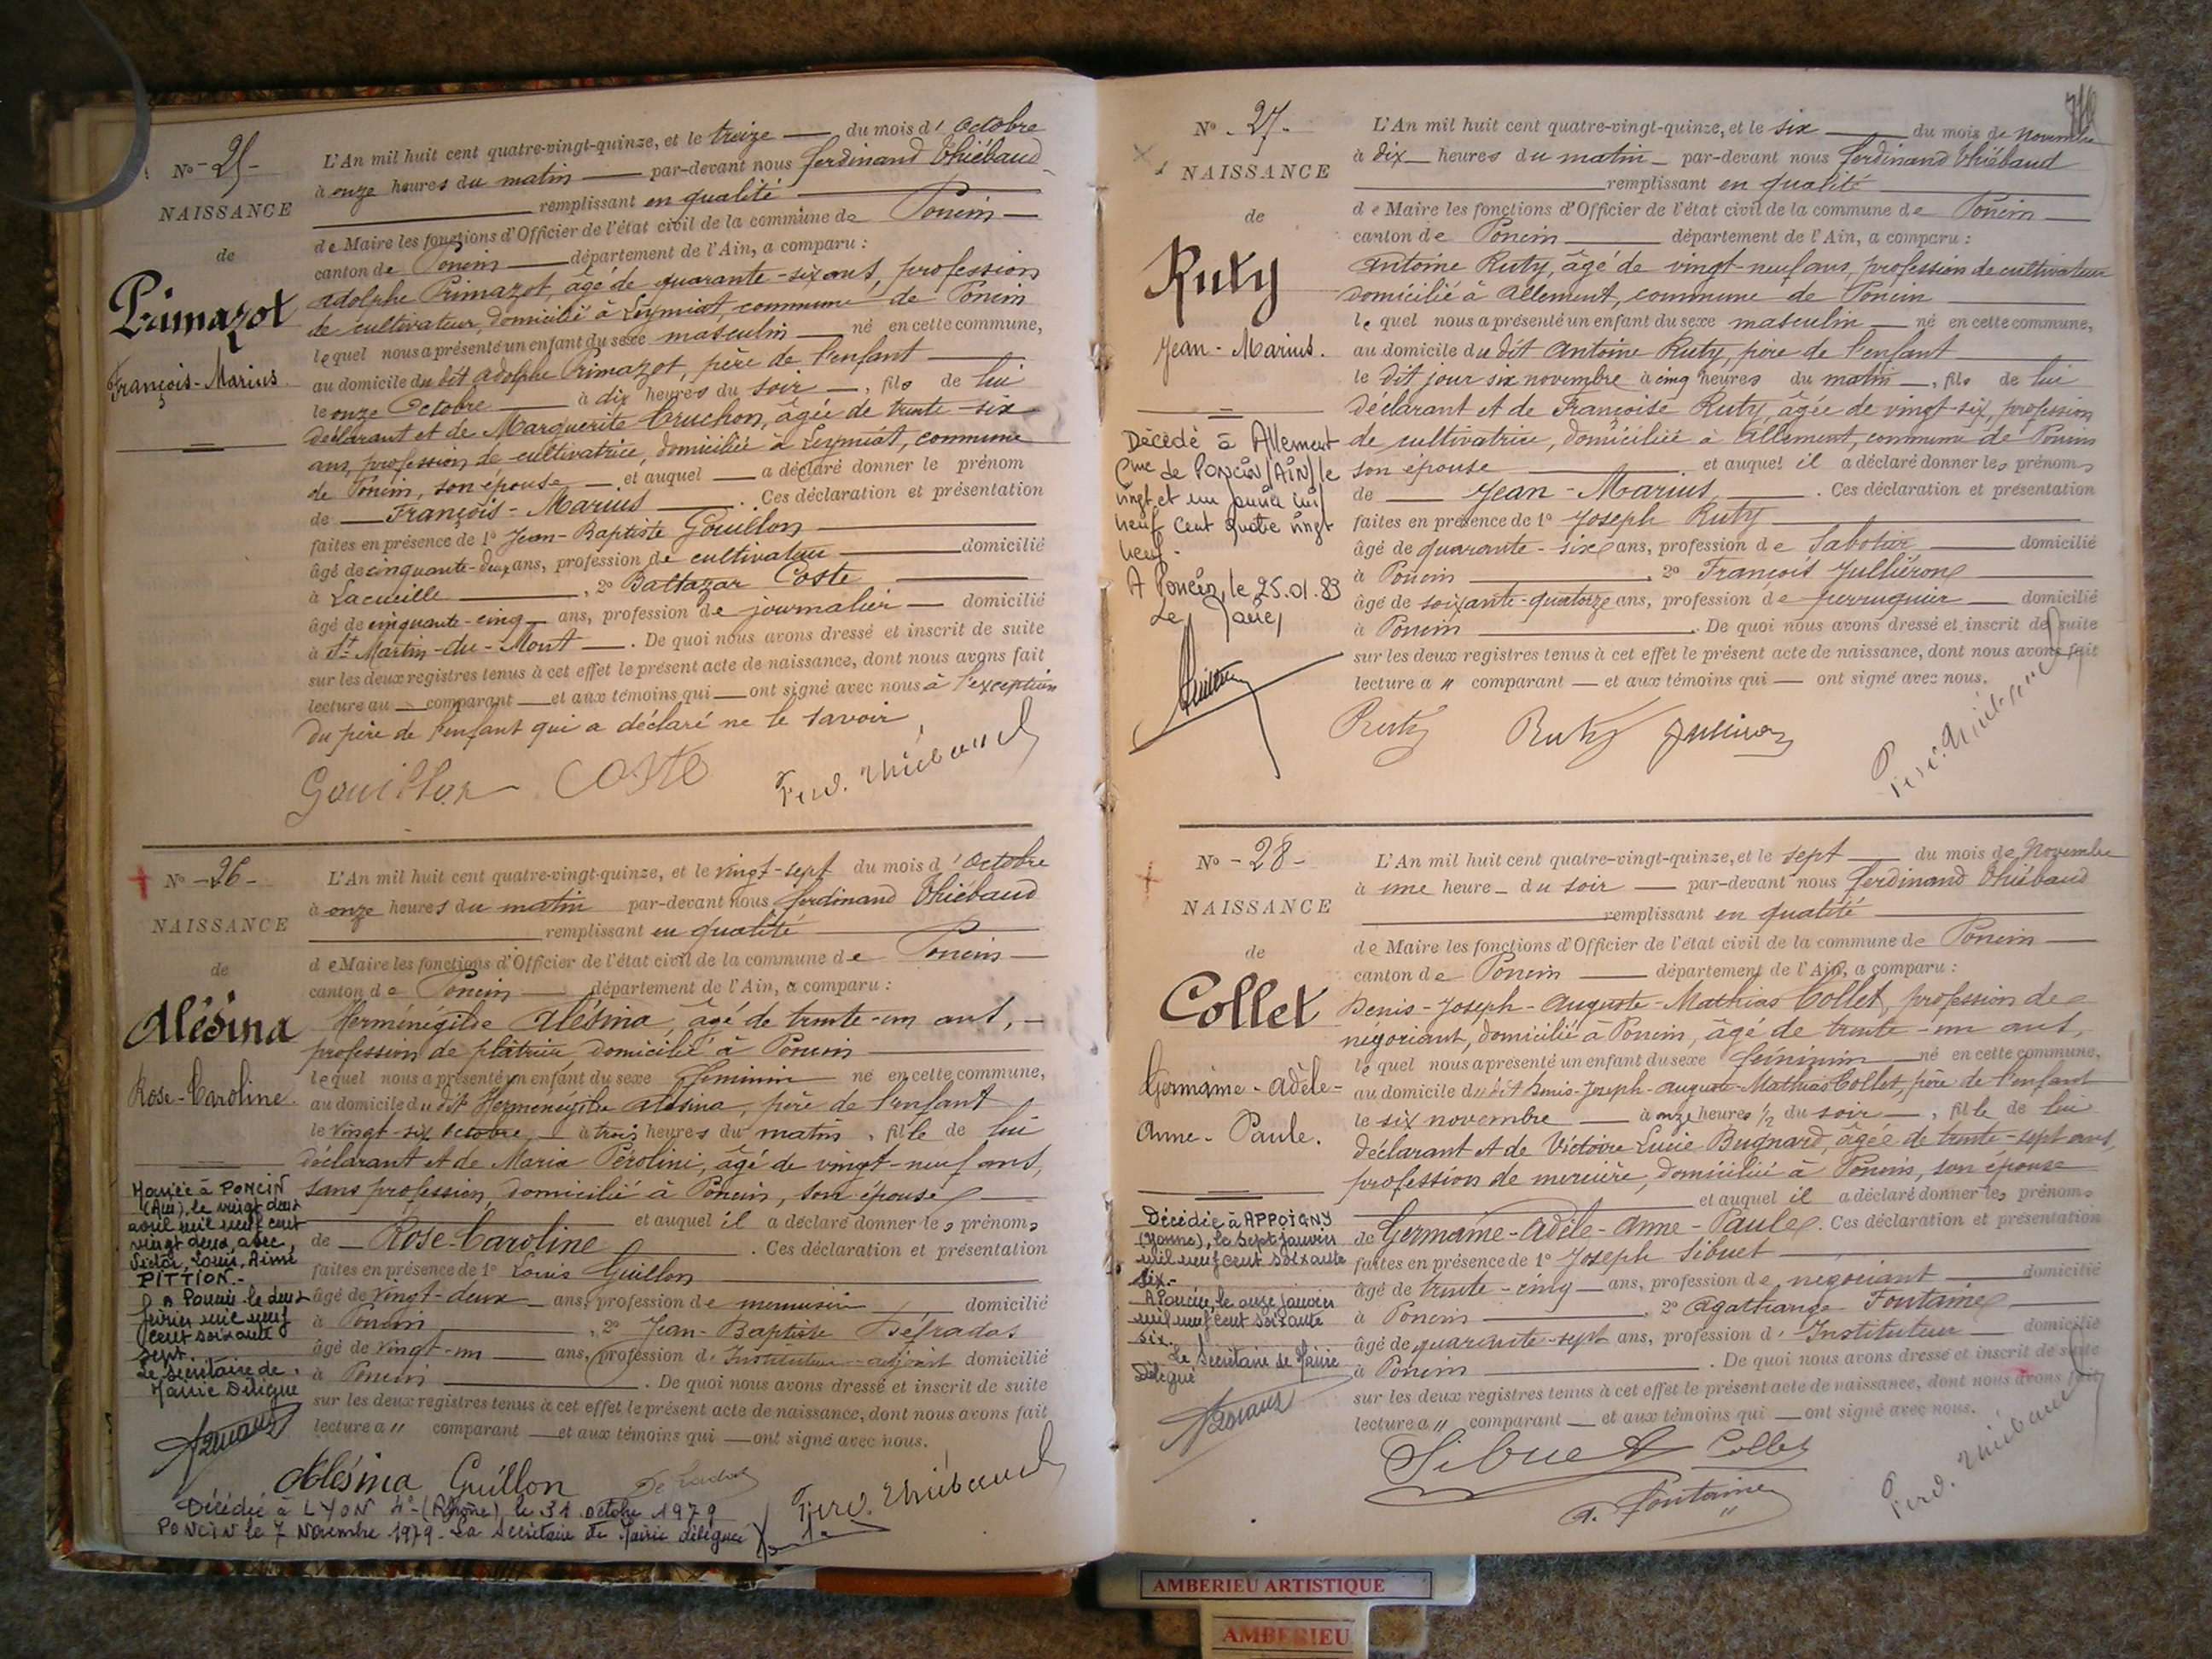 N° - 25 -
NAISSANCE
de
Primazot
François-Marius
L'An mil huit cent quatre-vingt-quinze, et le treize du mois d' Octobre
à onze heures du matin par-devant nous Ferdinand Thiébaud
remplissant en qualité
de Maire les fonctions d'Officier de l'état civil de la commune de Poncin
canton de Poncin département de l'Ain, a comparu :
Adolphe Primazot, âgé de quarante-six ans, profession
de cultivateur, domicilié à Leymiat, commune de Poncin
lequel nous a présenté un enfant du sexe masculin né en cette commune,
au domicile du dit Adolphe Primazot, père de l'enfant
le onze Octobre à dix heures du soir, fils de lui
déclarant et de Marguerite Cruchon, âgée de trente-six
ans, profession de cultivatrice, domiciliée à Leymiat, commune
de Poncin, son épouse et auquel a déclaré donner le prénom
de François-Marius. Ces déclaration et présentation
faites en présence de 1° Jean-Baptiste Gouillon
âgé de cinquante-deux ans, profession de cultivateur domicilié
à Lacueille, 2° Baltazar Coste
âgé de cinquante-cinq ans, profession de journalier domicilié
à St Martin-du-Mont. De quoi nous avons dressé et inscrit de suite
sur les deux registres tenus à cet effet le présent acte de naissance, dont nous avons fait
lecture au comparant et aux témoins qui ont signé avec nous à l'exception
du père de l'enfant qui a déclaré ne le savoir
Gouillon Coste Ferd. Thiébaud
N° - 26 -
NAISSANCE
de
Alésina
Rose-Caroline
L'An mil huit cent quatre-vingt-quinze, et le vingt-sept du mois d' Octobre
à onze heures du matin par-devant nous Ferdinand Thiébaud
remplissant en qualité
de Maire les fonctions d'Officier de l'état civil de la commune de Poncin
canton de Poncin département de l'Ain, a comparu :
Herménégilde Alésina, âgé de trente-un ans,
profession de plâtrier domicilié à Poncin
lequel nous a présenté un enfant du sexe féminin né en cette commune,
au domicile du dit Herménégilde Alésina, père de l'enfant
le vingt-six octobre, à trois heures du matin, fille de lui
déclarant et de Maria Pérolini, âgé de vingt-neuf ans,
sans profession, domicilié à Poncin, son épouse
et auquel il a déclaré donner les prénoms
de Rose-Caroline. Ces déclaration et présentation
faites en présence de 1° Louis Guillon
âgé de vingt-deux ans, profession de menuisier domicilié
à Poncin, 2° Jean-Baptiste Défradas
âgé de vingt-un ans, profession d' Instituteur-adjoint domicilié
à Poncin. De quoi nous avons dressé et inscrit de suite
sur les deux registres tenus à cet effet le présent acte de naissance, dont nous avons fait
lecture a " comparant et aux témoins qui ont signé avec nous.
Mariée à PONCIN
(Ain), le vingt deux
avril mil neuf cent
vingt deux, avec
Victor, Louis, Aimé
PITTION.-
A Poncin le deux
février mil neuf
cent soixante
sept
Le Secrétaire de
Mairie Délégué
Alésina Guillon Défradas Ferd. Thiébaud
Décédée à LYON 4e (Rhône) le 31 octobre 1979
PONCIN le 7 Novembre 1979 - La Secrétaire de Mairie déléguée
N° - 27 -
NAISSANCE
de
Ruty
Jean-Marius.
L'An mil huit cent quatre-vingt-quinze, et le six du mois de Novembre
à dix heures du matin par-devant nous Ferdinand Thiébaud
remplissant en qualité
de Maire les fonctions d'Officier de l'état civil de la commune de Poncin
canton de Poncin département de l'Ain, a comparu :
Antoine Ruty, âgé de vingt-neuf ans, profession de cultivateur
domicilié à Allement, commune de Poncin
lequel nous a présenté un enfant du sexe masculin né en cette commune,
au domicile du dit Antoine Ruty, père de l'enfant
le dit jour six novembre à cinq heures du matin, fils de lui
déclarant et de Françoise Ruty, âgée de vingt-six, profession
de cultivatrice, domiciliée à Allement, commune de Poncin
son épouse et auquel il a déclaré donner les prénoms
de Jean-Marius. Ces déclaration et présentation
faites en présence de 1° Joseph Ruty
âgé de quarante-six ans, profession de Sabotier domicilié
à Poncin, 2° François Jullièron
âgé de soixante-quatorze ans, profession de perruquier domicilié
à Poncin. De quoi nous avons dressé et inscrit de suite
sur les deux registres tenus à cet effet le présent acte de naissance, dont nous avons fait
lecture a " comparant et aux témoins qui ont signé avec nous.
Décédé à Allement
Cne de PONCIN (AIN) le
vingt et un janvier mil
neuf cent quatre vingt
neuf -
A Poncin, le 25.01.89
Le Maire,
Ruty Ruty Ferd. Thiébaud
N° - 28 -
NAISSANCE
de
Collet
Germaine-Adèle-
Anne-Paule.
L'An mil huit cent quatre-vingt-quinze, et le sept du mois de Novembre
à une heure du soir par-devant nous Ferdinand Thiébaud
remplissant en qualité
de Maire les fonctions d'Officier de l'état civil de la commune de Poncin
canton de Poncin département de l'Ain, a comparu :
Denis-Joseph-Auguste-Mathias Collet, profession de
négociant, domicilié à Poncin, âgé de trente-un ans,
lequel nous a présenté un enfant du sexe féminin né en cette commune,
au domicile du dit Denis-Joseph-Auguste-Mathias Collet, père de l'enfant
le six novembre à onze heures ½ du soir, fille de lui
déclarant et de Victoire Lucie Bugnard, âgée de trente-sept ans,
profession de mercière, domiciliée à Poncin, son épouse
et auquel il a déclaré donner les prénoms
de Germaine-Adèle-Anne-Paule. Ces déclaration et présentation
faites en présence de 1° Joseph Sibuet
âgé de trente-cinq ans, profession de négociant domicilié
à Poncin 2° Agathange Fontaine
âgé de quarante-sept ans, profession d' Instituteur domicilié
à Poncin. De quoi nous avons dressé et inscrit de suite
sur les deux registres tenus à cet effet le présent acte de naissance, dont nous avons fait
lecture a " comparant et aux témoins qui ont signé avec nous.
Décédée à APPOIGNY
(Yonne), le sept janvier
mil neuf cent soixante
six.-
A Poncin, le onze janvier
mil neuf cent soixante
six.
Le Secrétaire de Mairie
Délégué
Sibuet Collet
A. Fontaine Ferd. Thiébaud
AMBERIEU ARTISTIQUE
AMBERIEU